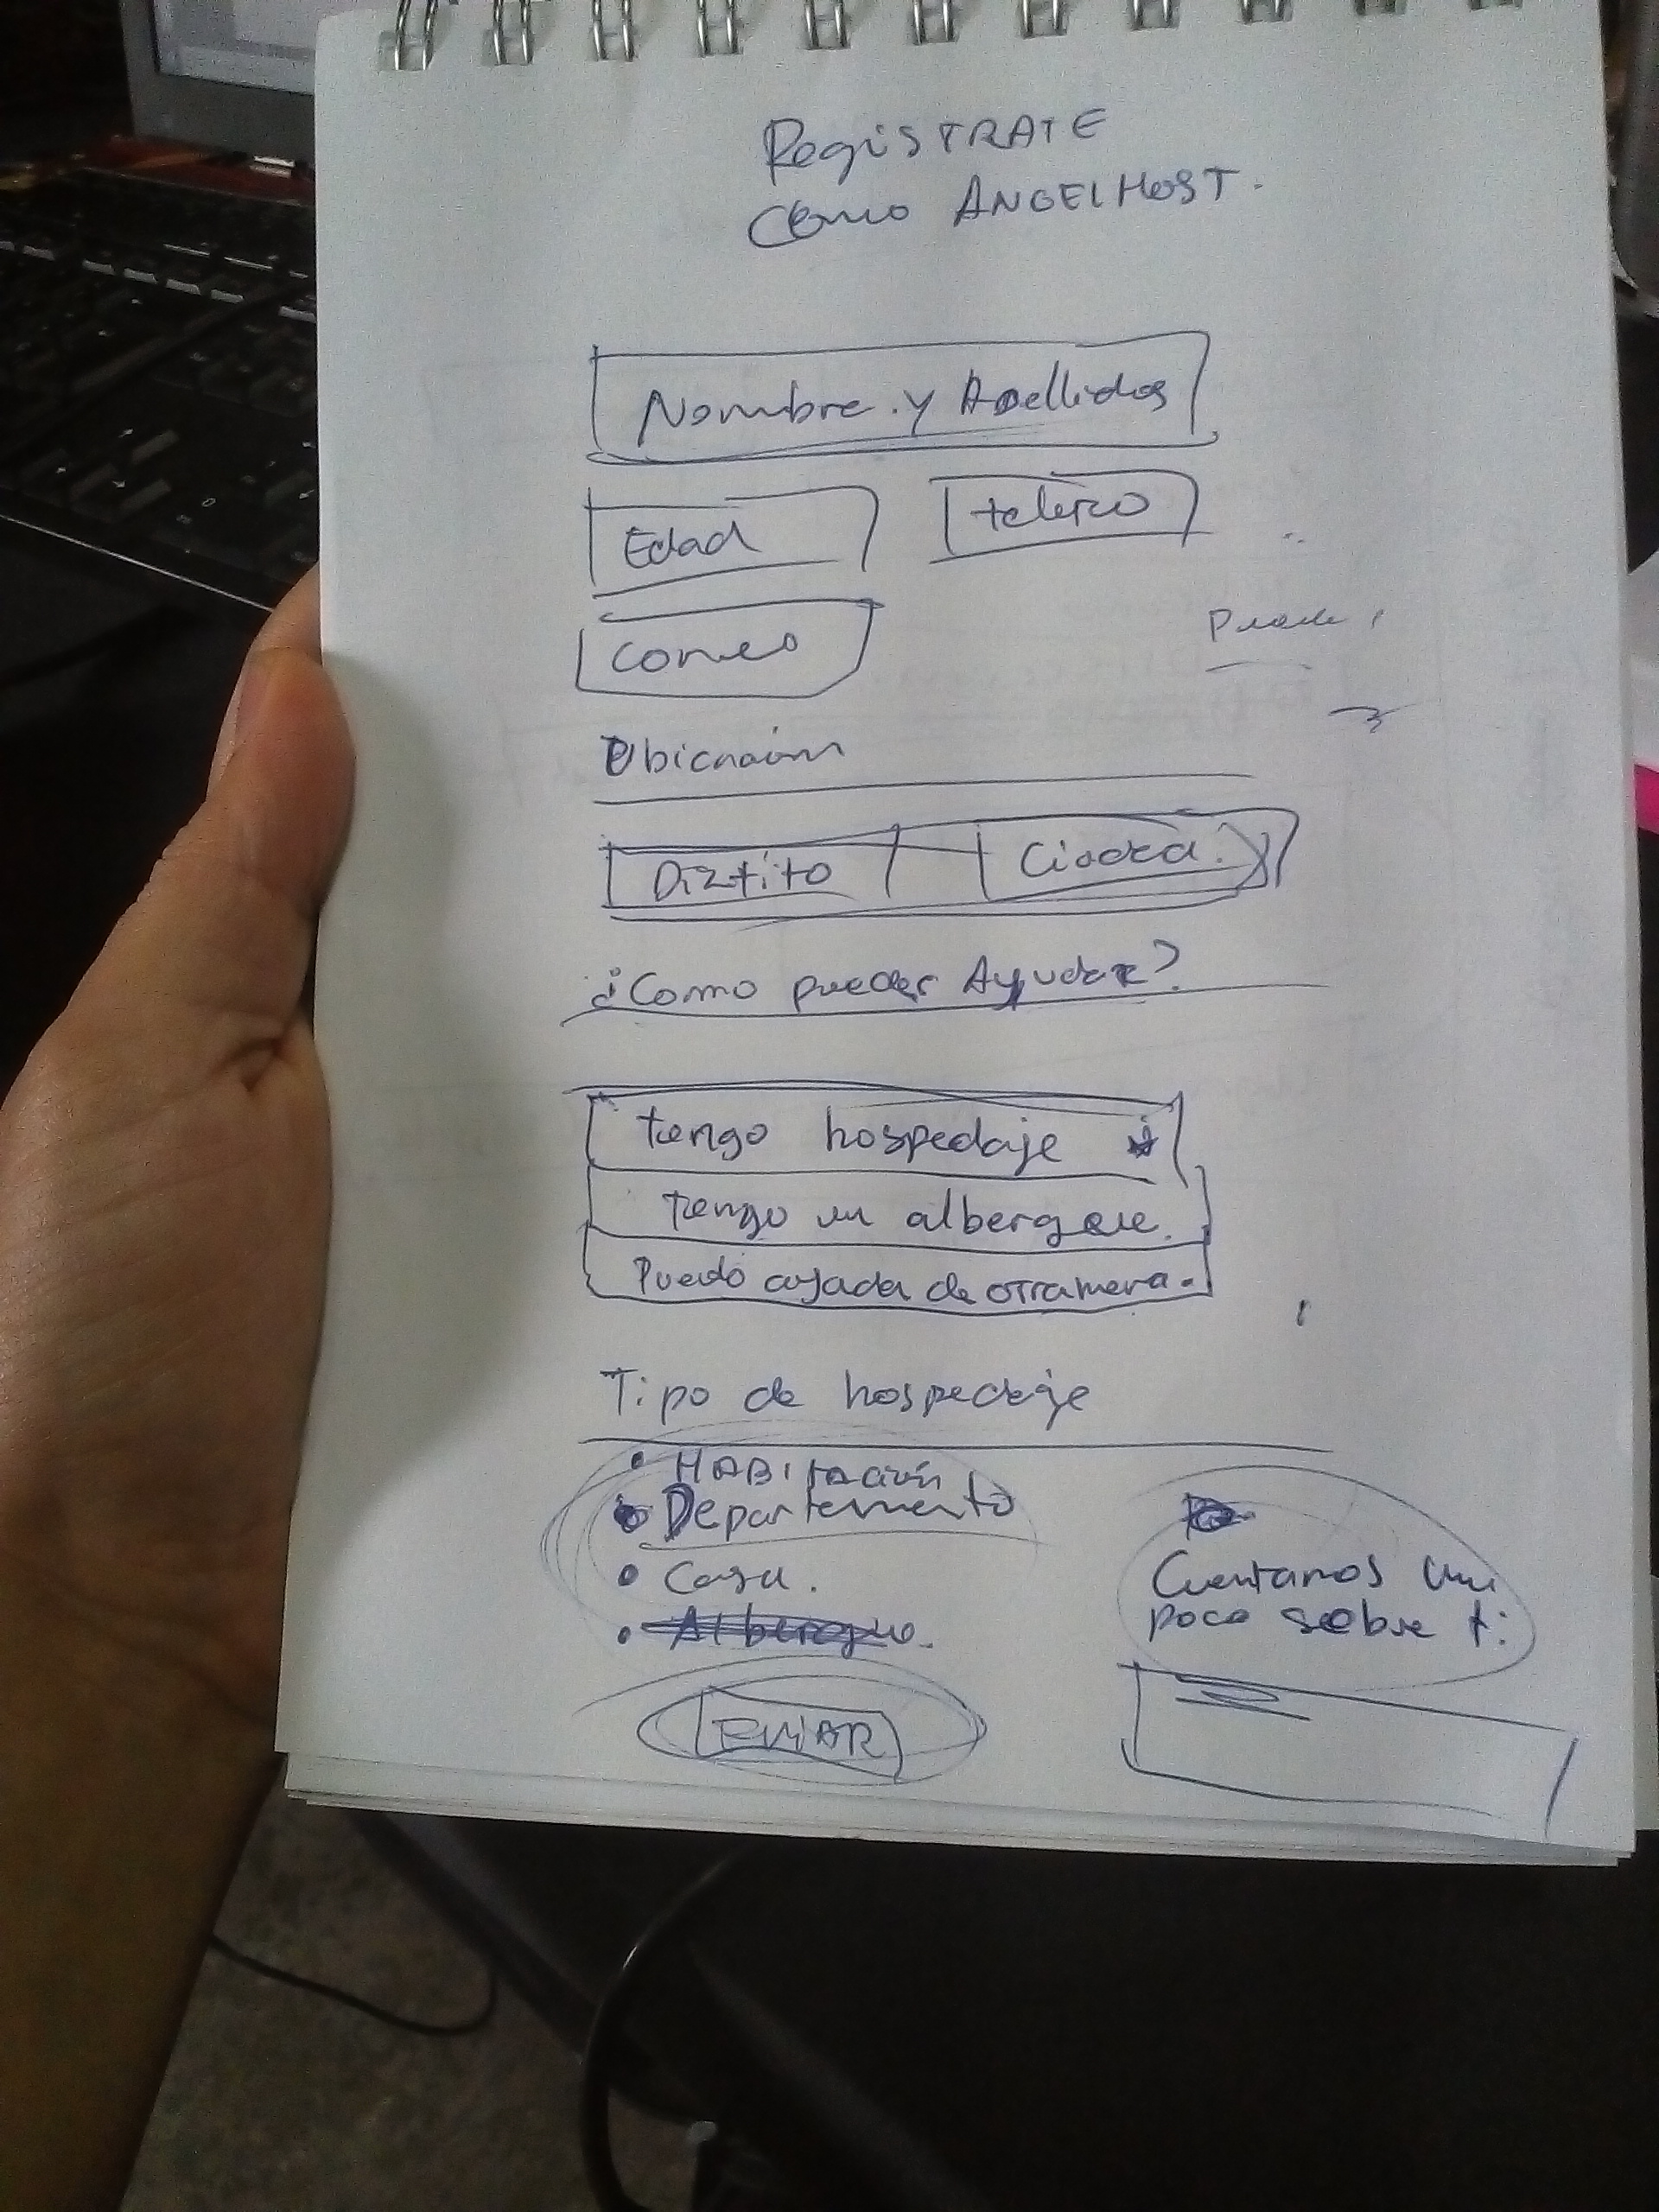 RegiSTRATE
como ANGELHOST.
Nombre y Apellidos
Edad
Correo
Ubicación
Ciudad
¿Como puedes Ayudar?
tengo hospedaje
tengo un albergue.
Puedo de otra
Tipo de hospedaje
• HABITACIÓN
• Departamento
• Casa.
• Albergue.
Cuentanos un
poco sobre ti
ENVIAR